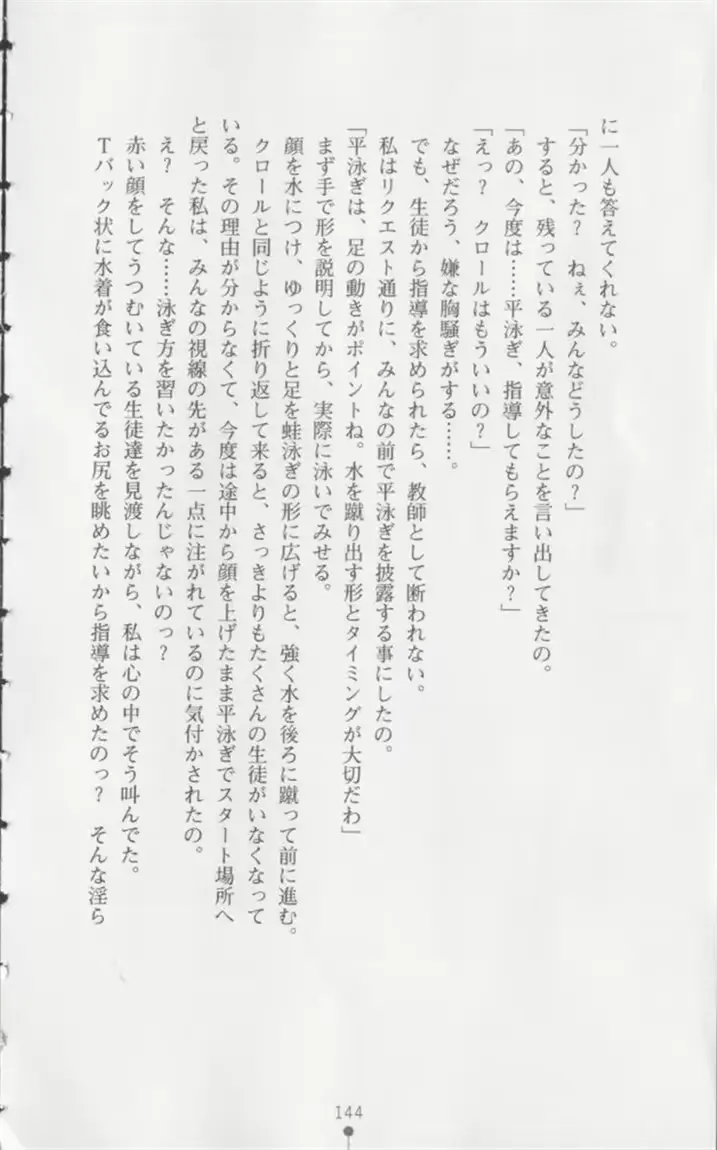 に一人も答えてくれない。
「分かった？　ねぇ、みんなどうしたの？」
　すると、残っている一人が意外なことを言い出してきたの。
「あの、今度は……平泳ぎ、指導してもらえますか？」
「えっ？　クロールはもういいの？」
　なぜだろう、嫌な胸騒ぎがする……。
　でも、生徒から指導を求められたら、教師として断われない。
　私はリクエスト通りに、みんなの前で平泳ぎを披露する事にしたの。
「平泳ぎは、足の動きがポイントね。水を蹴り出す形とタイミングが大切だわ」
　まず手で形を説明してから、実際に泳いでみせる。
　顔を水につけ、ゆっくりと足を蛙泳ぎの形に広げると、強く水を後ろに蹴って前に進む。
　クロールと同じように折り返して来ると、さっきよりもたくさんの生徒がいなくなって
いる。その理由が分からなくて、今度は途中から顔を上げたまま平泳ぎでスタート場所へ
と戻った私は、みんなの視線の先がある一点に注がれているのに気付かされたの。
　え？　そんな……泳ぎ方を習いたかったんじゃないのっ？
　赤い顔をしてうつむいている生徒達を見渡しながら、私は心の中でそう叫んでた。
　Ｔバック状に水着が食い込んでるお尻を眺めたいから指導を求めたのっ？　そんな淫ら
144